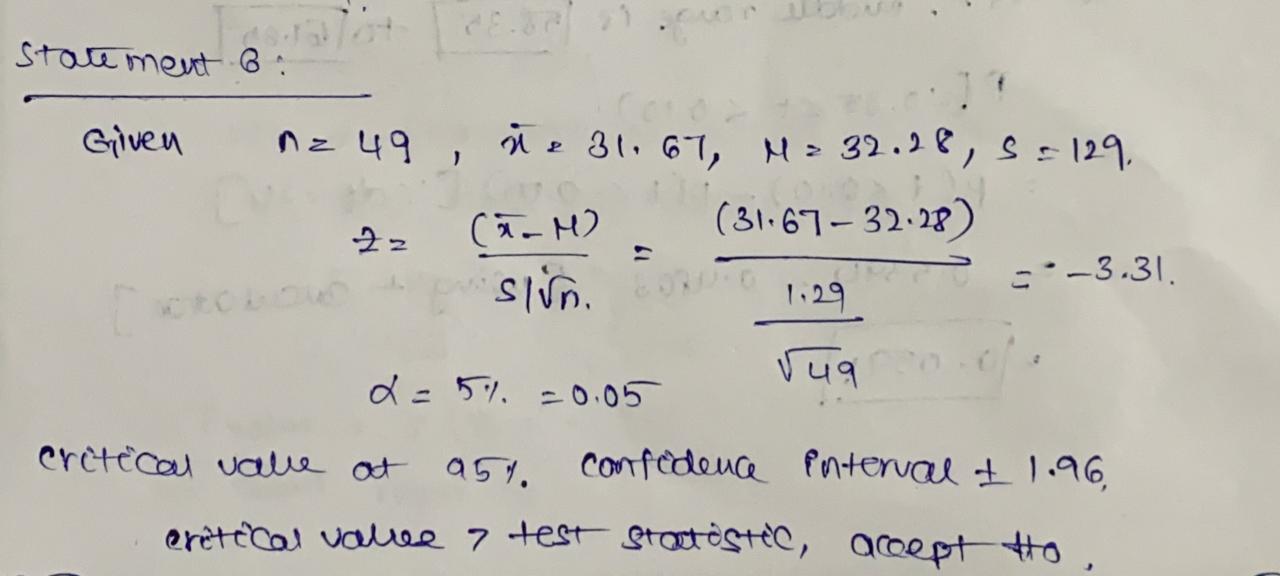 Statement 6:
Given n = 49, x̄ = 31.67, M = 32.28, S = 129.
z = (x̄ - M) / S/√n. = (31.67 - 32.28) / 1.29 / √49 = -3.31.
α = 5% = 0.05
critical value at 95% confidence interval ± 1.96,
critical value > test statistic, accept H0.